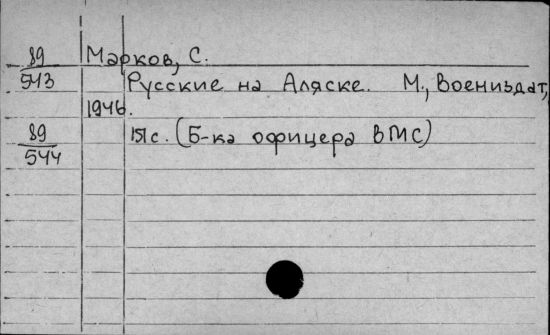 89 Марков, С.
543 Русские на Аляске. М., Воениздат,
1946.
89 151с. (Б-ка офицера ВМС)
544